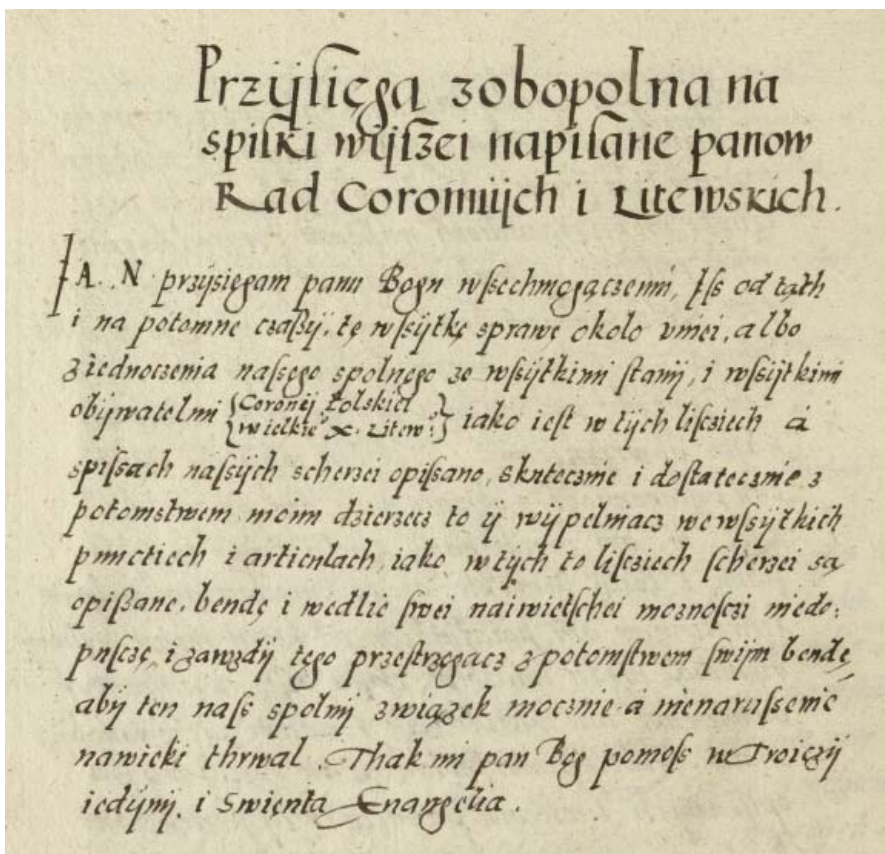 Przÿsięga zobopolna na
spiski wÿszei napisane panow
Rad Coronnÿch i Litewskich.
JA. N przÿsięgam panu Bogu wssechmogączemu, Iss od tąth
i na potomne czassÿ, tę wssÿtkę sprawę około vniei, albo
ziednoczenia nassego spolnego ze wssÿtkimi stanÿ, i wssÿtkimi
obÿwatelmi {Coronÿ Polskiei
{Wielkie° X. Litew:} iako iest w tÿch lisciech á
spissach nassÿch scherzei opissano, skutecznie i dostatecznie z
potomstwem moim dzierzecz to ÿ wÿpelniacz we wssÿtkich
punctiech i articulach, iako w tÿch to lisciech scherzei są
opissane, bendę i wedlie swei naiwietschei moznosczi niedo:
pusczę, i zawzdÿ tego przestrzegacz z potomstwem swÿm bendę,
abÿ ten nass spolnÿ związek mocznie á nienarussenie
nawieki thrwal. Thak mi pan Bog pomoss w Troiczÿ
iedÿnÿ, i Swięnta Ewangelia.